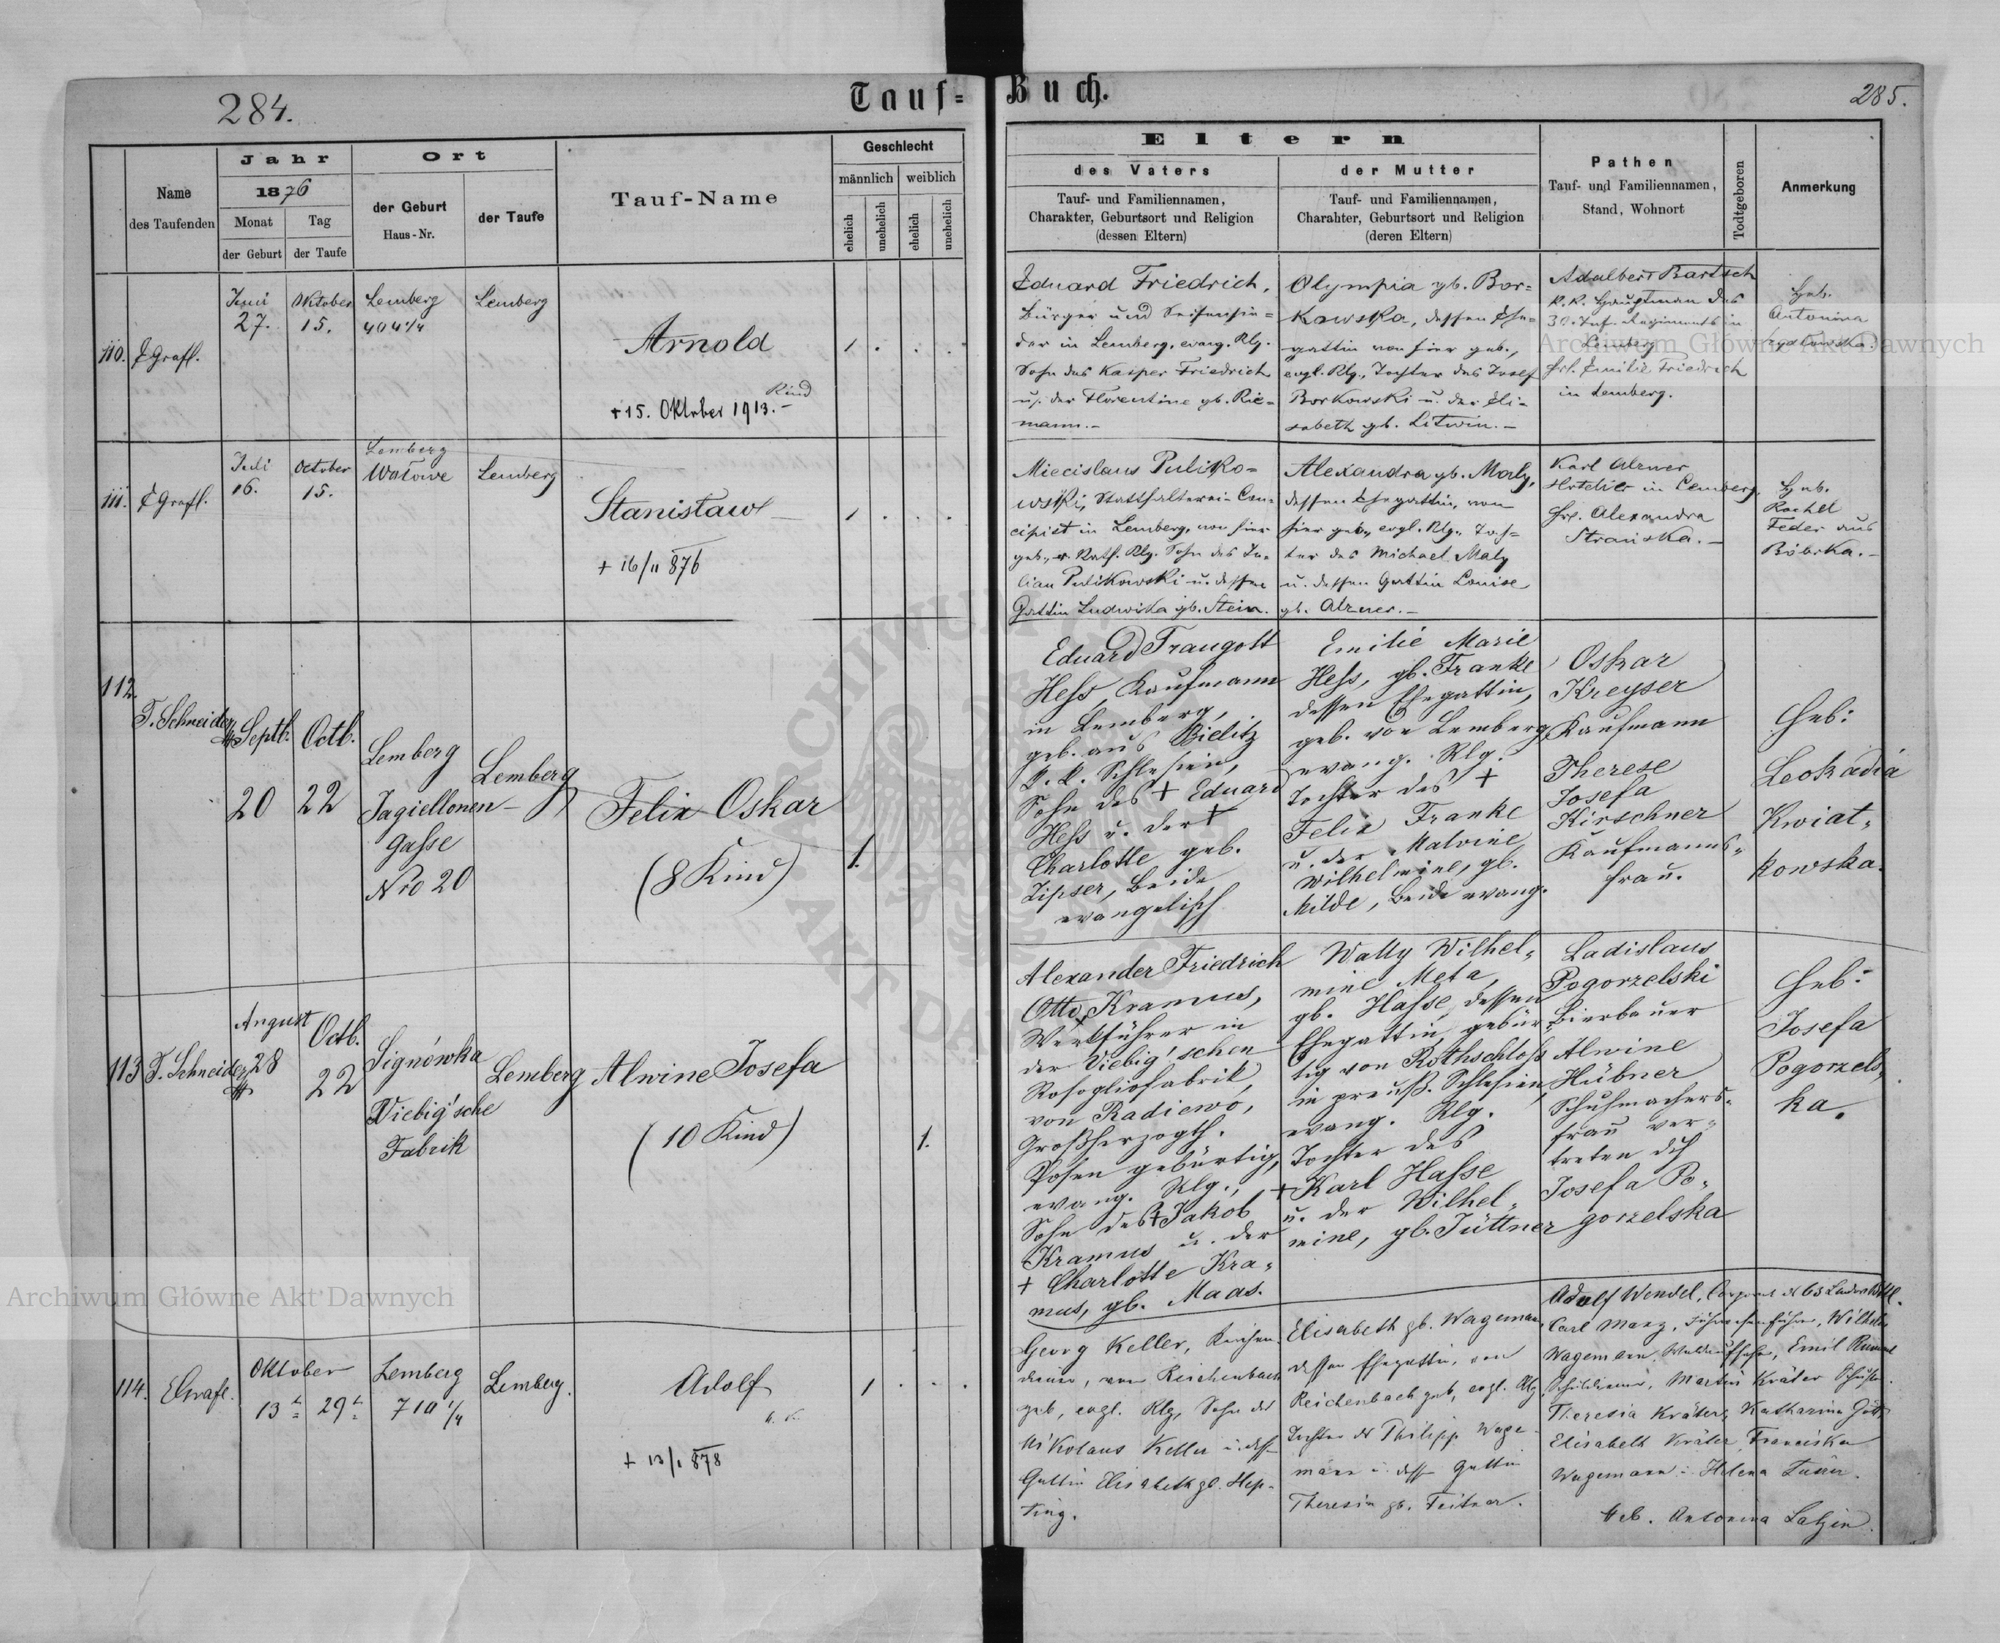 284.
Tauf=
Buch.
285.
Name
des Taufenden
Jahr
1876
Monat
der Geburt
Tag
der Taufe
Ort
der Geburt
Haus-Nr.
der Taufe
Tauf-Name
Geschlecht
männlich
weiblich
ehelich
unehelich
ehelich
unehelich
Eltern
des Vaters
Tauf- und Familiennamen,
Charakter, Geburtsort und Religion
(dessen Eltern)
der Mutter
Tauf- und Familiennamen,
Charakter, Geburtsort und Religion
(deren Eltern)
Pathen
Tauf- und Familiennamen,
Stand, Wohnort
Todtgeboren
Anmerkung
110.
E Grafl.
Juni
27.
Oktober
15.
Lemberg
404 1/4
Lemberg
Arnold
Kind
+ 15. Oktober 1913.-
1
Eduard Friedrich,
Bürger und Seifensie=
der in Lemberg, evang. Rlg.
Sohn des Kasper Friedrich
u. der Florentine gb. Rie=
mann.-
Olympia gb. Bor=
kowska, dessen Ehe=
gattin von hier geb.,
evgl. Rlg., Tochter des Josef
Borkowski u. der Eli=
sabeth gb. Litwin.-
Adalbert Bartsch
k.k. Hauptman des
30. Inf. Regiments in
Lemberg
Frl. Emilie Friedrich
in Lemberg.
Heb.
Antonina
111.
E Grafl.
Juli
16.
October
15.
Lemberg
Wałowe
Lemberg
Stanisław
+ 16/11 876
1
Miecislaus Puliko=
wski, Statthalterei Con=
cipist in Lemberg, von hier
geb., r. kath. Rlg. Sohn des Ju=
lian Pulikowski u. dessen
Gattin Ludwika gb. Stein.
Alexandra gb. Maly,
dessen Ehegattin, von
hier geb., evgl. Rlg., Toch=
ter des Michael Maly
u. dessen Gattin Louise
gb. Alzner.-
Karl Alzner
Hotelier in Lemberg,
Frl. Alexandra
Strańska.-
Heb.
Rachel
Feder aus
Bóbrka.-
112.
T. Schneider
Septb.
20
Octb.
22
Lemberg
Jagiellonen-
gasse
Nro 20
Lemberg
Felix Oskar
(8 Kind)
1.
Eduard Traugott
Hess, Kaufmann
in Lemberg,
geb. aus Bielitz
k.k. Schlesien,
Sohn des + Eduard
Hess u. der +
Charlotte geb.
Zipser, beide
evangelisch
Emilie Marie
Hess, gb. Franke
dessen Ehegattin,
geb. von Lemberg,
evang. Rlg.
Tochter des +
Felix Franke
u. der Malvine
Wilhelmine, gb.
Milde, beide evang.
Oskar
Kreyser
Kaufmann
Therese
Josefa
Kirschner
Kaufmanns=
frau.
Heb:
Leokadia
Kwiat=
kowska.
113
T. Schneider
August
28
Octb.
22
Signówka
Viebig'sche
Fabrik
Lemberg
Alwine Josefa
(10 Kind)
1.
Alexander Friedrich
Otto Kramus,
Werkführer in
der Viebig'schen
Rosogliofabrik,
von Radiewo,
Großherzogth.
Posen gebürtig,
evang. Rlg.,
Sohn des + Jakob
Kramus u. der
+ Charlotte Kra=
mus, gb. Maas.
Wally Wilhel=
mine Meta,
gb. Hasse, dessen
Ehegattin, gebür=
tig von Rothschloss
in preuß. Schlesien,
evang. Rlg.
Tochter des
+ Karl Hasse
u. der Wilhel=
mine, gb. Jüttner
Ladislaus
Pogorzelski
Bierbauer
Alwine
Hübner
Schuhmachers=
frau ver=
treten dch
Josefa Po=
gorzelska
Heb:
Josefa
Pogorzels=
ka.
114.
E Grafl.
Oktober
13
29
Lemberg
710 1/4
Lemberg.
Adolf
+ 13/1 878
1
Georg Keller, Kirchen=
diener, von Reichenbach
geb, evgl. Rlg, Sohn des
Nikolaus Keller u. dess
Gattin Elisabeth gb. Hep=
ting.
Elisabeth gb. Wageman,
dessen Ehegattin, von
Reichenbach geb, evgl. Rlg
Tochter des Philipp Wage=
mann u. dess Gattin
Theresia gb. Feitner.
Adolf Wendel,
Carl Manz, Wilhelm
Wagemann, Emil
Schuldiener, Martin Kräter Schuster
Theresia Kräter, Katharina
Elisabeth Kräter, Franciska
Wagemann u. Helena
Heb. Antonina Latzin.
Archiwum Główne Akt Dawnych
Archiwum Główne Akt Dawnych